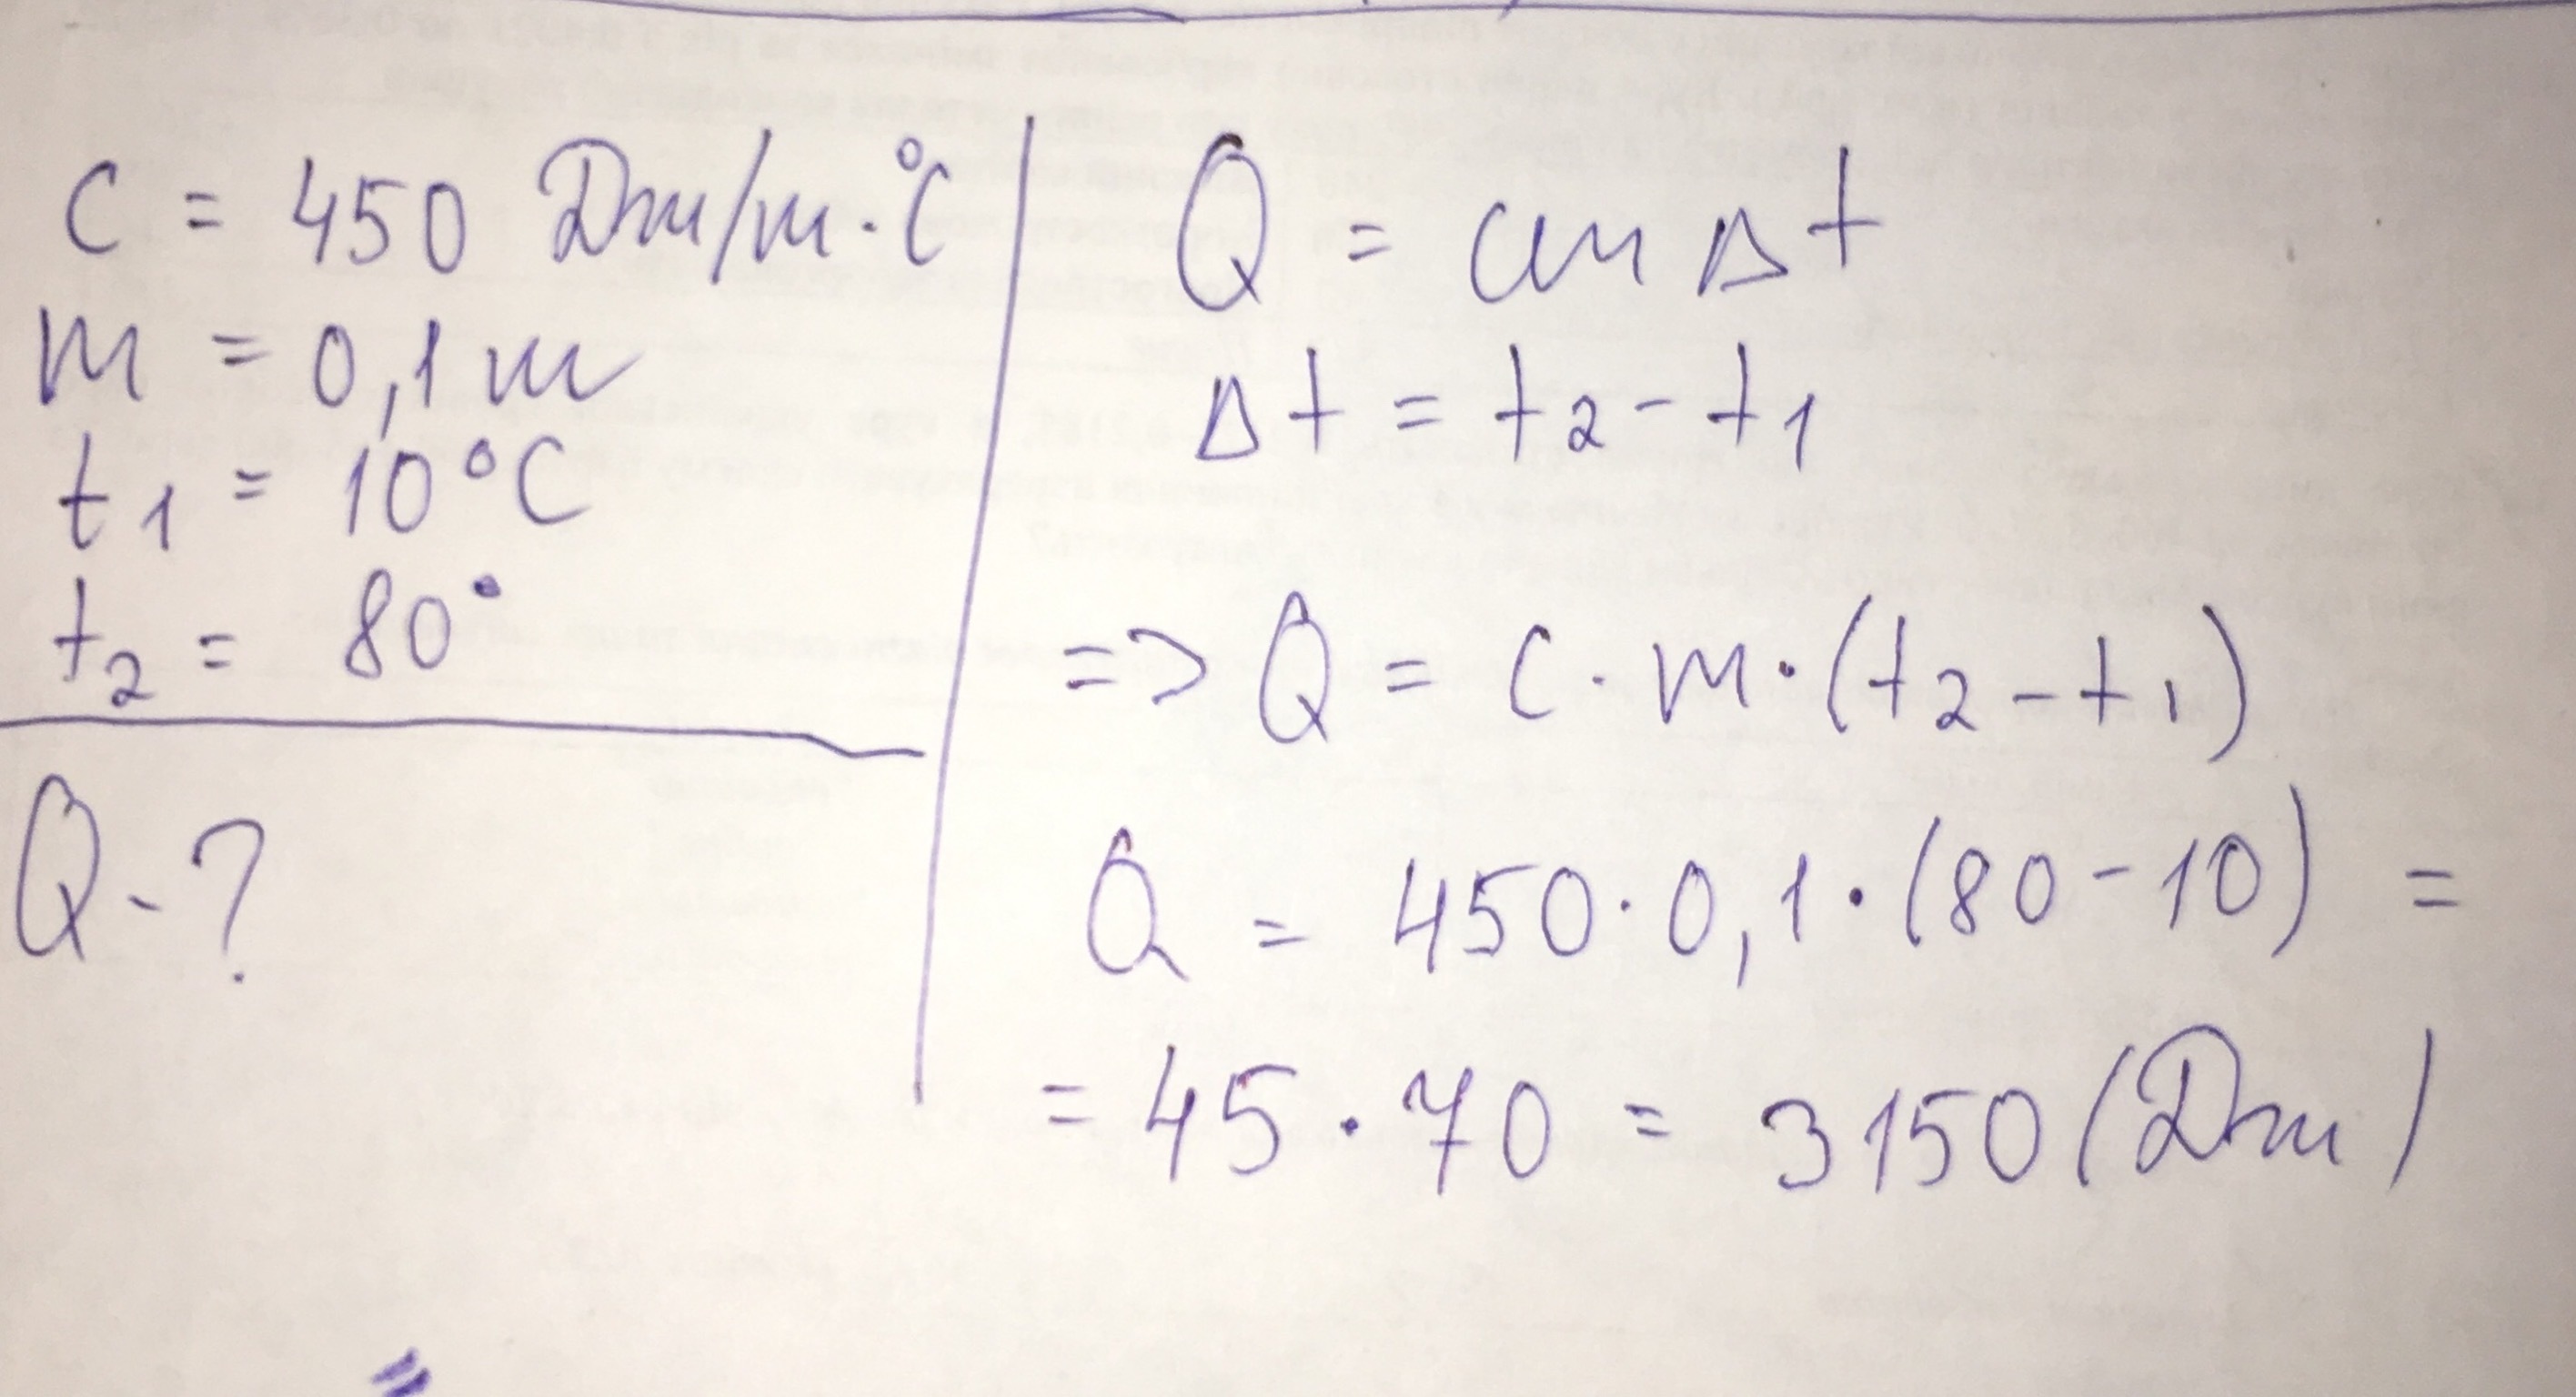 C = 450 Dm/m·°C
m = 0,1 m
t1 = 10°C
t2 = 80°
Q - ?
Q = cm Δt
Δt = t2 - t1
=> Q = c · m · (t2 - t1)
Q = 450 · 0,1 · (80 - 10) =
= 45 · 70 = 3150 (Dm)